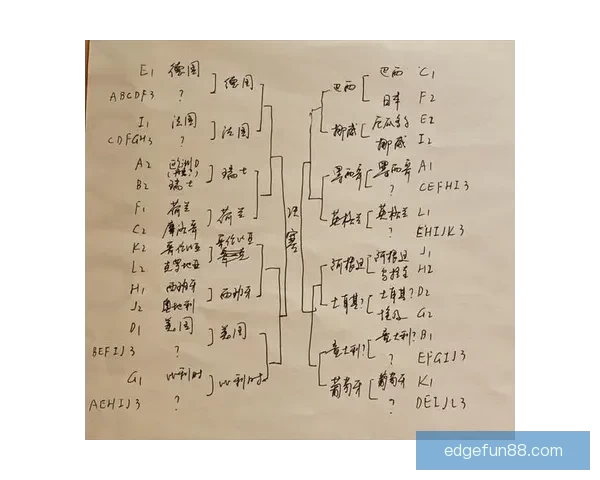 E1 德国
ABCDF3 ?
德国
I1 法国
CDFGH3 ?
法国
A2 欧洲D
B2 瑞士
瑞士
F1 荷兰
C2 摩洛哥
荷兰
K2 哥伦比亚
L2 克罗地亚
哥伦比亚
H1 西班牙
J2 奥地利
西班牙
D1 美国
BEFIJ3 ?
美国
G1 比利时
AEHIJ3 ?
比利时
决赛
巴西
巴西 C1
日本 F2
挪威
厄瓜多尔 E2
挪威 I2
墨西哥
墨西哥 A1
? CEFHI3
英格兰
英格兰 L1
? EHIJK3
阿根廷
阿根廷 J1
乌拉圭 H2
土耳其?
土耳其? D2
埃及 G2
意大利?
意大利? B1
? EFGIJ3
葡萄牙
葡萄牙 K1
? DEIJL3
edgefun88.com